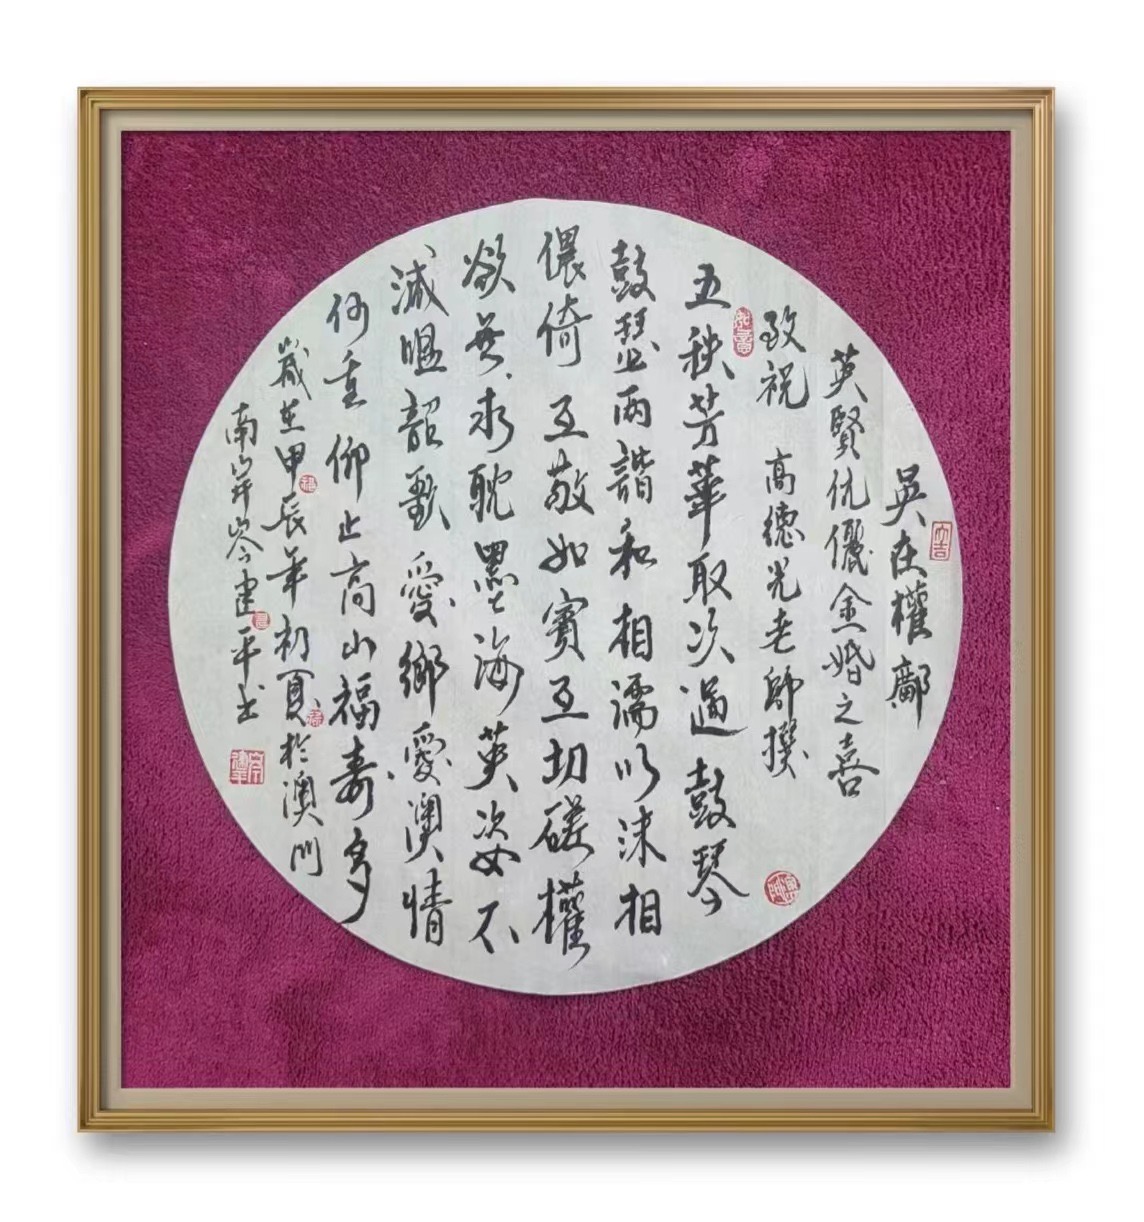 吳在權鄺
英賢伉儷金婚之喜
致祝 高德光老師撰
五秩芳華取次過鼓琴
鼓瑟兩諧和相濡以沫相
偎倚互敬如賓互切磋權
欲無求耽墨海英姿不
減韶歌愛鄉愛澳情
何重仰止高山福壽多
歲在甲辰年初夏於澳門
南岸岑建平書
大吉
如意